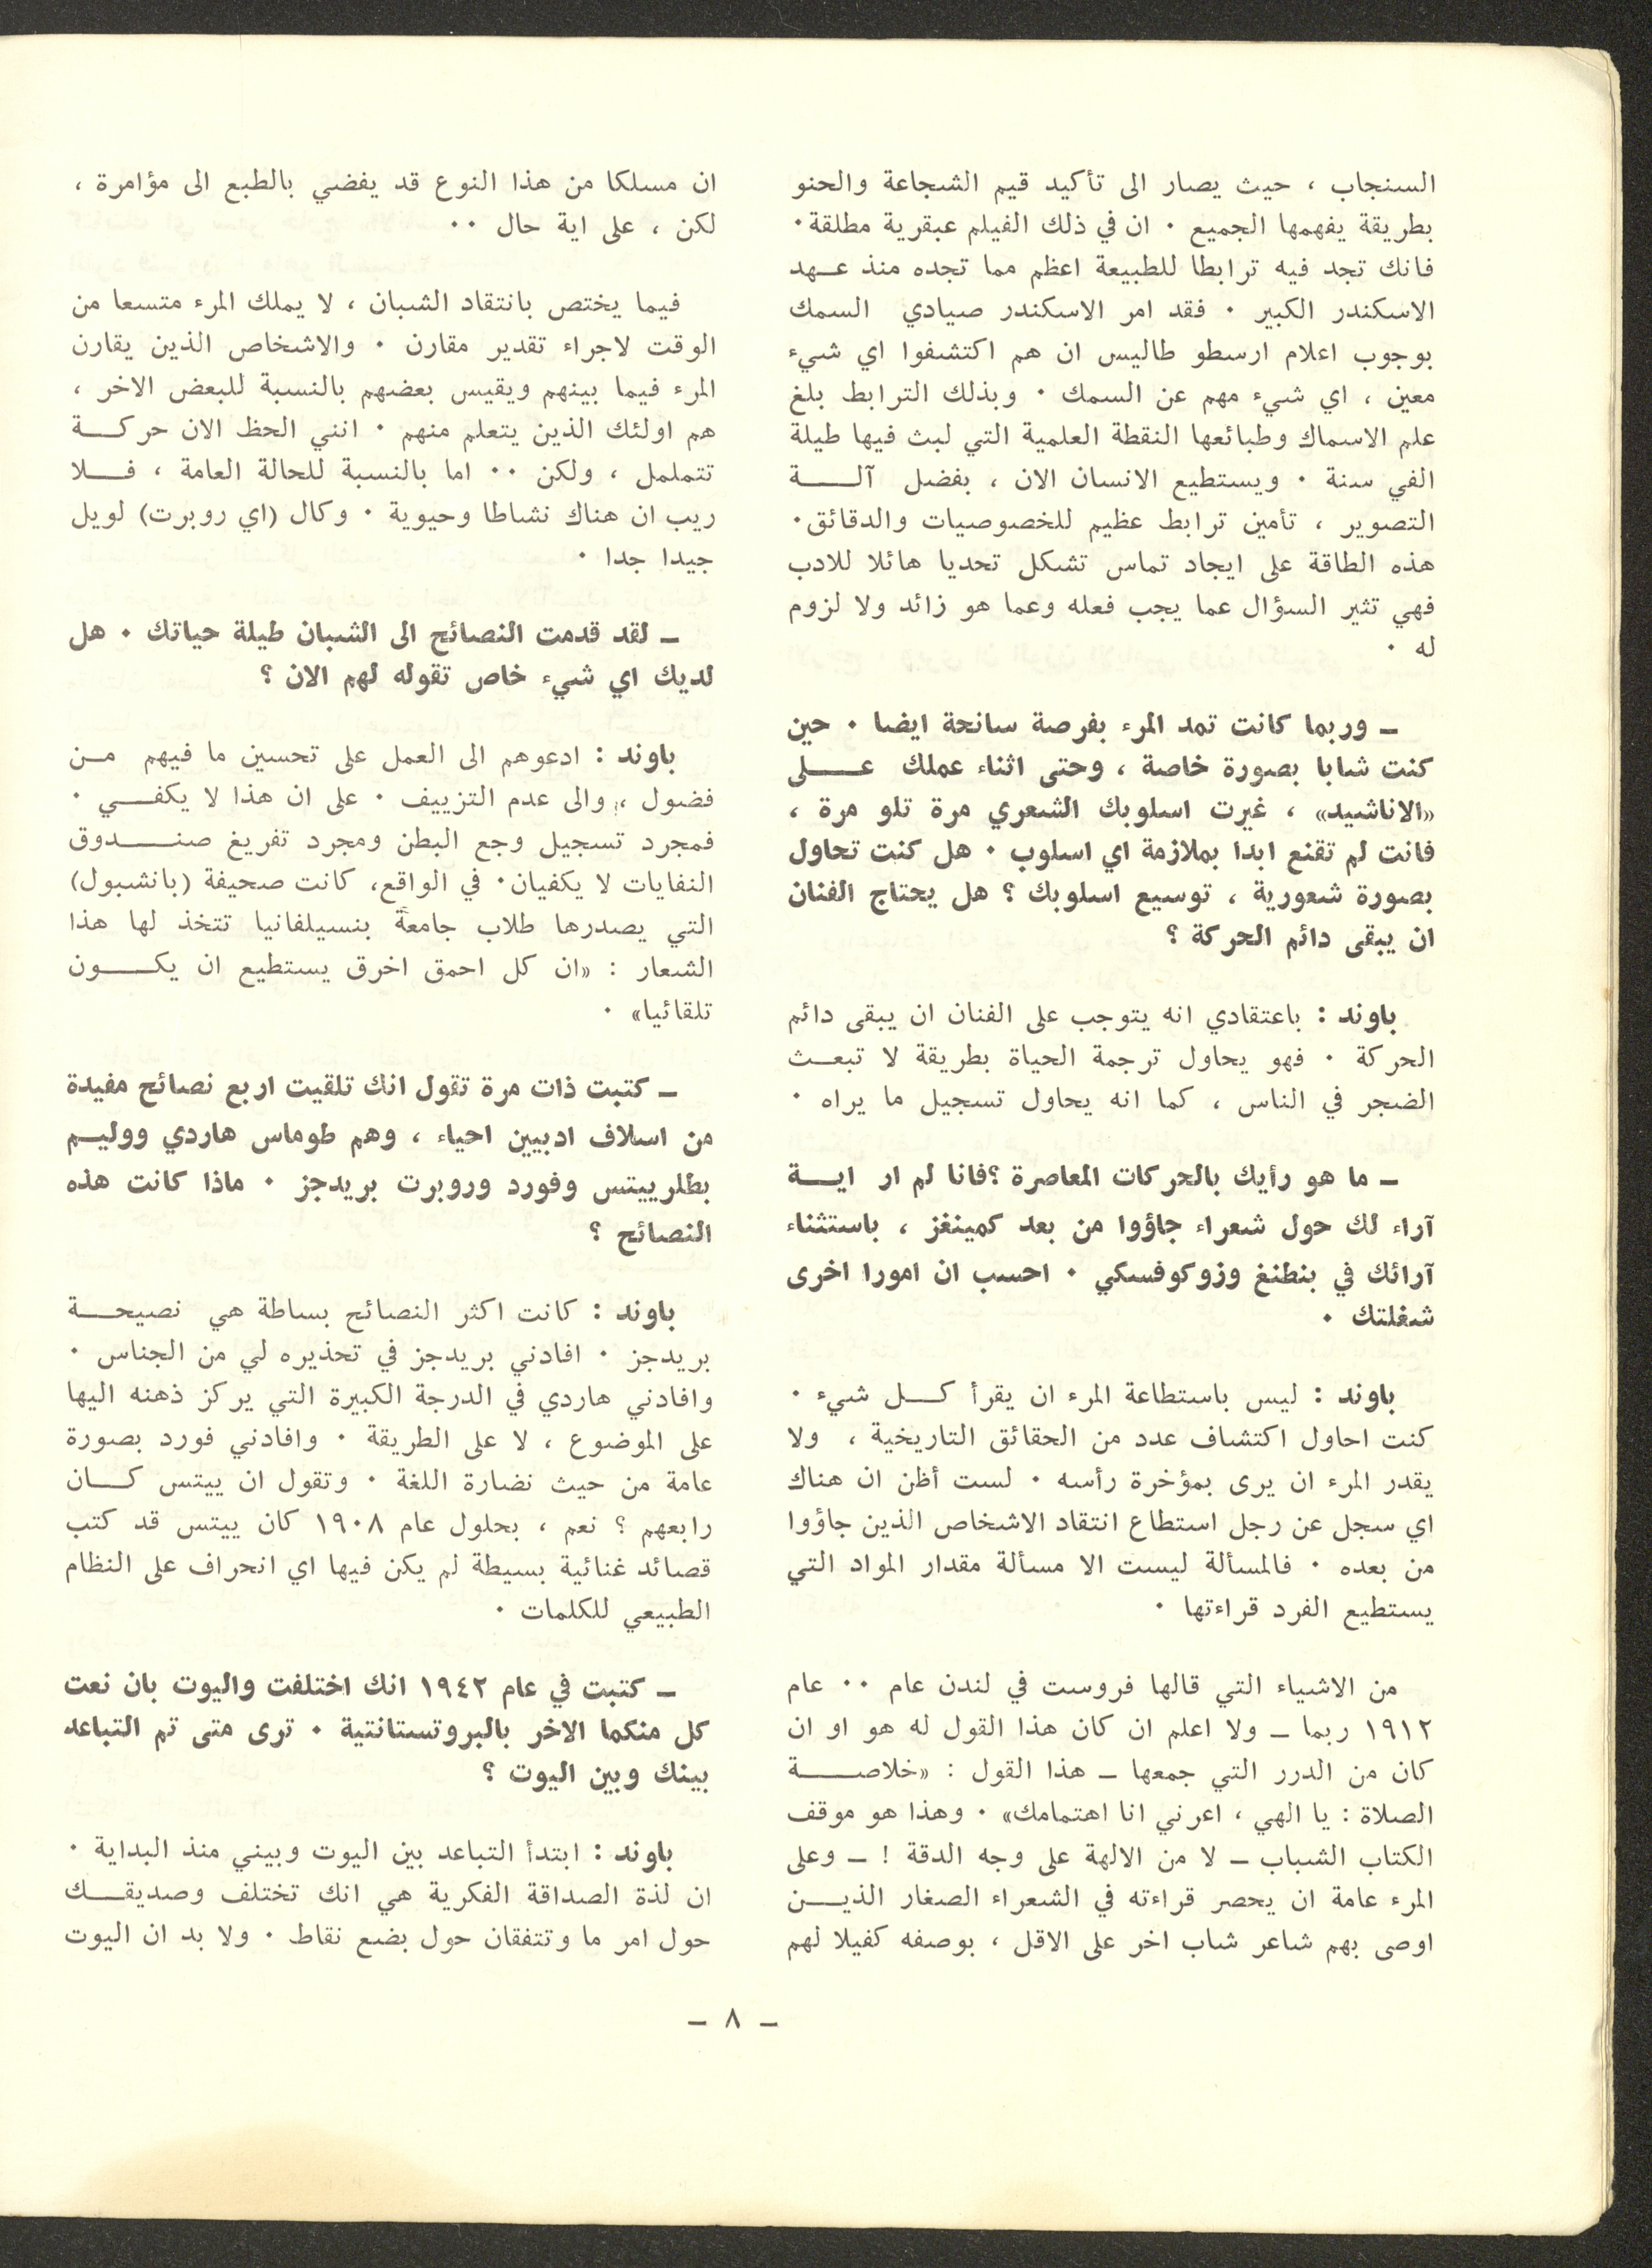 السنجاب ، حيث يصار الى تأكيد قيم الشجاعة والحنو
بطريقة يفهمها الجميع ٠ ان في ذلك الفيلم عبقرية مطلقة٠
فانك تجد فيه ترابطا للطبيعة اعظم مما تجده منذ عهد
الاسكندر الكبير ٠ فقد امر الاسكندر صيادي السمك
بوجوب اعلام ارسطو طاليس ان هم اكتشفوا اي شيء
معين ، اي شيء مهم عن السمك ٠ وبذلك الترابط بلغ
علم الاسماك وطبائعها النقطة العلمية التي لبث فيها طيلة
الفي سنة ٠ ويستطيع الانسان الان ، بفضل آلة
التصوير ، تأمين ترابط عظيم للخصوصيات والدقائق٠
هذه الطاقة على ايجاد تماس تشكل تحديا هائلا للادب
فهي تثير السؤال عما يجب فعله وعما هو زائد ولا لزوم
له ٠
ـ وربما كانت تمد المرء بفرصة سانحة ايضا ٠ حين
كنت شابا بصورة خاصة ، وحتى اثناء عملك على
«الاناشيد» ، غيرت اسلوبك الشعري مرة تلو مرة ،
فانت لم تقنع ابدا بملازمة اي اسلوب ٠ هل كنت تحاول
بصورة شعورية ، توسيع اسلوبك ؟ هل يحتاج الفنان
ان يبقى دائم الحركة ؟
باوند : باعتقادي انه يتوجب على الفنان ان يبقى دائم
الحركة ٠ فهو يحاول ترجمة الحياة بطريقة لا تبعث
الضجر في الناس ، كما انه يحاول تسجيل ما يراه ٠
ـ ما هو رأيك بالحركات المعاصرة ؟فانا لم ار اية
آراء لك حول شعراء جاؤوا من بعد كمينغز ، باستثناء
آرائك في بنطنغ وزوكوفسكي ٠ احسب ان امورا اخرى
شغلتك ٠
باوند : ليس باستطاعة المرء ان يقرأ كل شيء ٠
كنت احاول اكتشاف عدد من الحقائق التاريخية ، ولا
يقدر المرء ان يرى بمؤخرة رأسه ٠ لست أظن ان هناك
اي سجل عن رجل استطاع انتقاد الاشخاص الذين جاؤوا
من بعده ٠ فالمسألة ليست الا مسألة مقدار المواد التي
يستطيع الفرد قراءتها ٠
من الاشياء التي قالها فروست في لندن عام ٠٠ عام
١٩١٢ ربما ـ ولا اعلم ان كان هذا القول له هو او ان
كان من الدرر التي جمعها ـ هذا القول : «خلاصة
الصلاة : يا الهي ، اعرني انا اهتمامك» ٠ وهذا هو موقف
الكتاب الشباب ـ لا من الالهة على وجه الدقة ! ـ وعلى
المرء عامة ان يحصر قراءته في الشعراء الصغار الذين
اوصى بهم شاعر شاب اخر على الاقل ، بوصفه كفيلا لهم
ان مسلكا من هذا النوع قد يفضي بالطبع الى مؤامرة ،
لكن ، على اية حال ٠٠
فيما يختص بانتقاد الشبان ، لا يملك المرء متسعا من
الوقت لاجراء تقدير مقارن ٠ والاشخاص الذين يقارن
المرء فيما بينهم ويقيس بعضهم بالنسبة للبعض الاخر ،
هم اولئك الذين يتعلم منهم ٠ انني الحظ الان حركة
تتململ ، ولكن ٠٠ اما بالنسبة للحالة العامة ، فلا
ريب ان هناك نشاطا وحيوية ٠ وكال (اي روبرت) لويل
جيدا جدا ٠
ـ لقد قدمت النصائح الى الشبان طيلة حياتك ٠ هل
لديك اي شيء خاص تقوله لهم الان ؟
باوند : ادعوهم الى العمل على تحسين ما فيهم من
فضول ، والى عدم التزييف ٠ على ان هذا لا يكفي ٠
فمجرد تسجيل وجع البطن ومجرد تفريغ صندوق
النفايات لا يكفيان٠ في الواقع، كانت صحيفة (بانشبول)
التي يصدرها طلاب جامعة بنسيلفانيا تتخذ لها هذا
الشعار : «ان كل احمق اخرق يستطيع ان يكون
تلقائيا» ٠
ـ كتبت ذات مرة تقول انك تلقيت اربع نصائح مفيدة
من اسلاف ادبيين احياء ، وهم طوماس هاردي ووليم
بطلرييتس وفورد وروبرت بريدجز ٠ ماذا كانت هذه
النصائح ؟
باوند : كانت اكثر النصائح بساطة هي نصيحة
بريدجز ٠ افادني بريدجز في تحذيره لي من الجناس ٠
وافادني هاردي في الدرجة الكبيرة التي يركز ذهنه اليها
على الموضوع ، لا على الطريقة ٠ وافادني فورد بصورة
عامة من حيث نضارة اللغة ٠ وتقول ان ييتس كان
رابعهم ؟ نعم ، بحلول عام ١٩٠٨ كان ييتس قد كتب
قصائد غنائية بسيطة لم يكن فيها اي انحراف على النظام
الطبيعي للكلمات ٠
ـ كتبت في عام ١٩٤٢ انك اختلفت واليوت بان نعت
كل منكما الاخر بالبروتستانتية ٠ ترى متى تم التباعد
بينك وبين اليوت ؟
باوند : ابتدأ التباعد بين اليوت وبيني منذ البداية ٠
ان لذة الصداقة الفكرية هي انك تختلف وصديقك
حول امر ما وتتفقان حول بضع نقاط ٠ ولا بد ان اليوت
ـ ٨ ـ